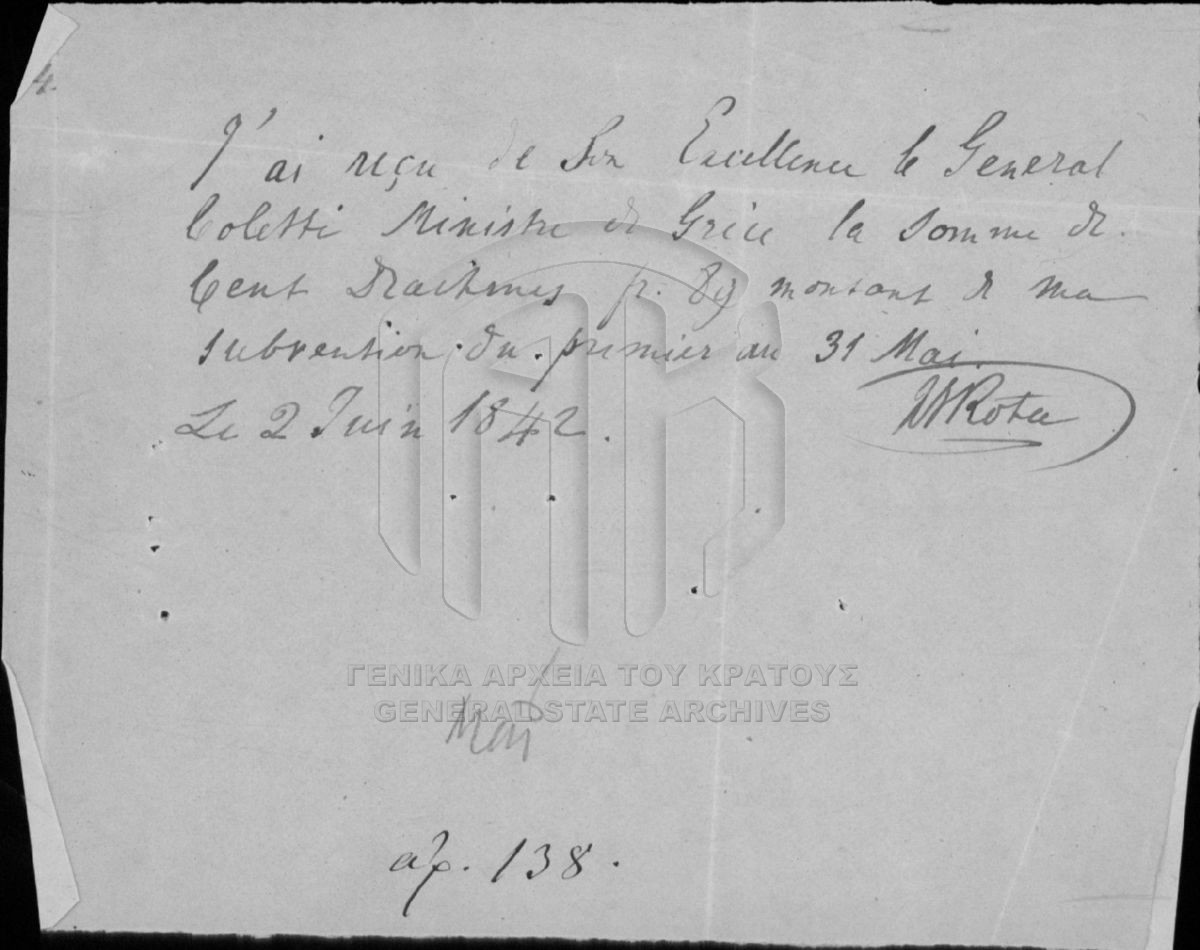 4.
J'ai reçu de Son Excellence le General
Coletti Ministre de Grèce la somme de
Cent Drachmes fr. 89 montant de ma
subvention du premier au 31 Mai.
Le 2 Juin 1842.
Rota
ΓΕΝΙΚΑ ΑΡΧΕΙΑ ΤΟΥ ΚΡΑΤΟΥΣ
GENERAL STATE ARCHIVES
Mai
αρ. 138.